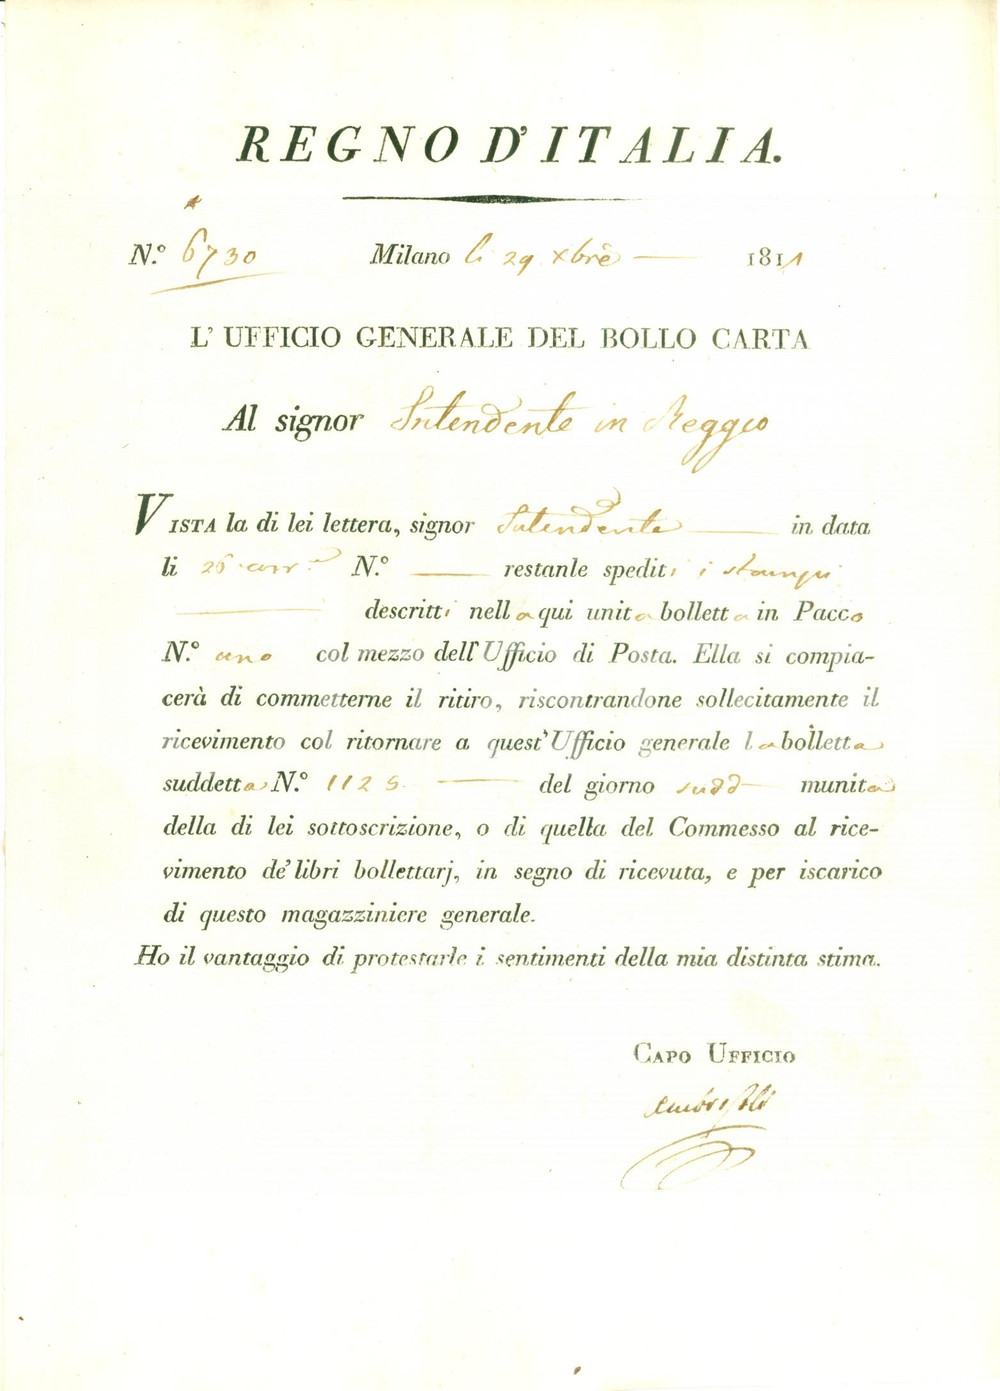 REGNO D'ITALIA.
N.° 6730 Milano li 29 xbrè 1811
L'UFFICIO GENERALE DEL BOLLO CARTA
Al signor Intendente in Reggio
VISTA la di lei lettera, signor Intendente in data
li 26 corr.e N.° restanle spediti i stampi
descritti nella qui unita bolletta in Pacco
N.° uno col mezzo dell'Ufficio di Posta. Ella si compia-
cerà di commetterne il ritiro, riscontrandone sollecitamente il
ricevimento col ritornare a quest'Ufficio generale la bolletta
suddetta N.° 1125 del giorno sudd munita
della di lei sottoscrizione, o di quella del Commesso al rice-
vimento de' libri bollettarj, in segno di ricevuta, e per iscarico
di questo magazziniere generale.
Ho il vantaggio di protestarle i sentimenti della mia distinta stima.
CAPO UFFICIO